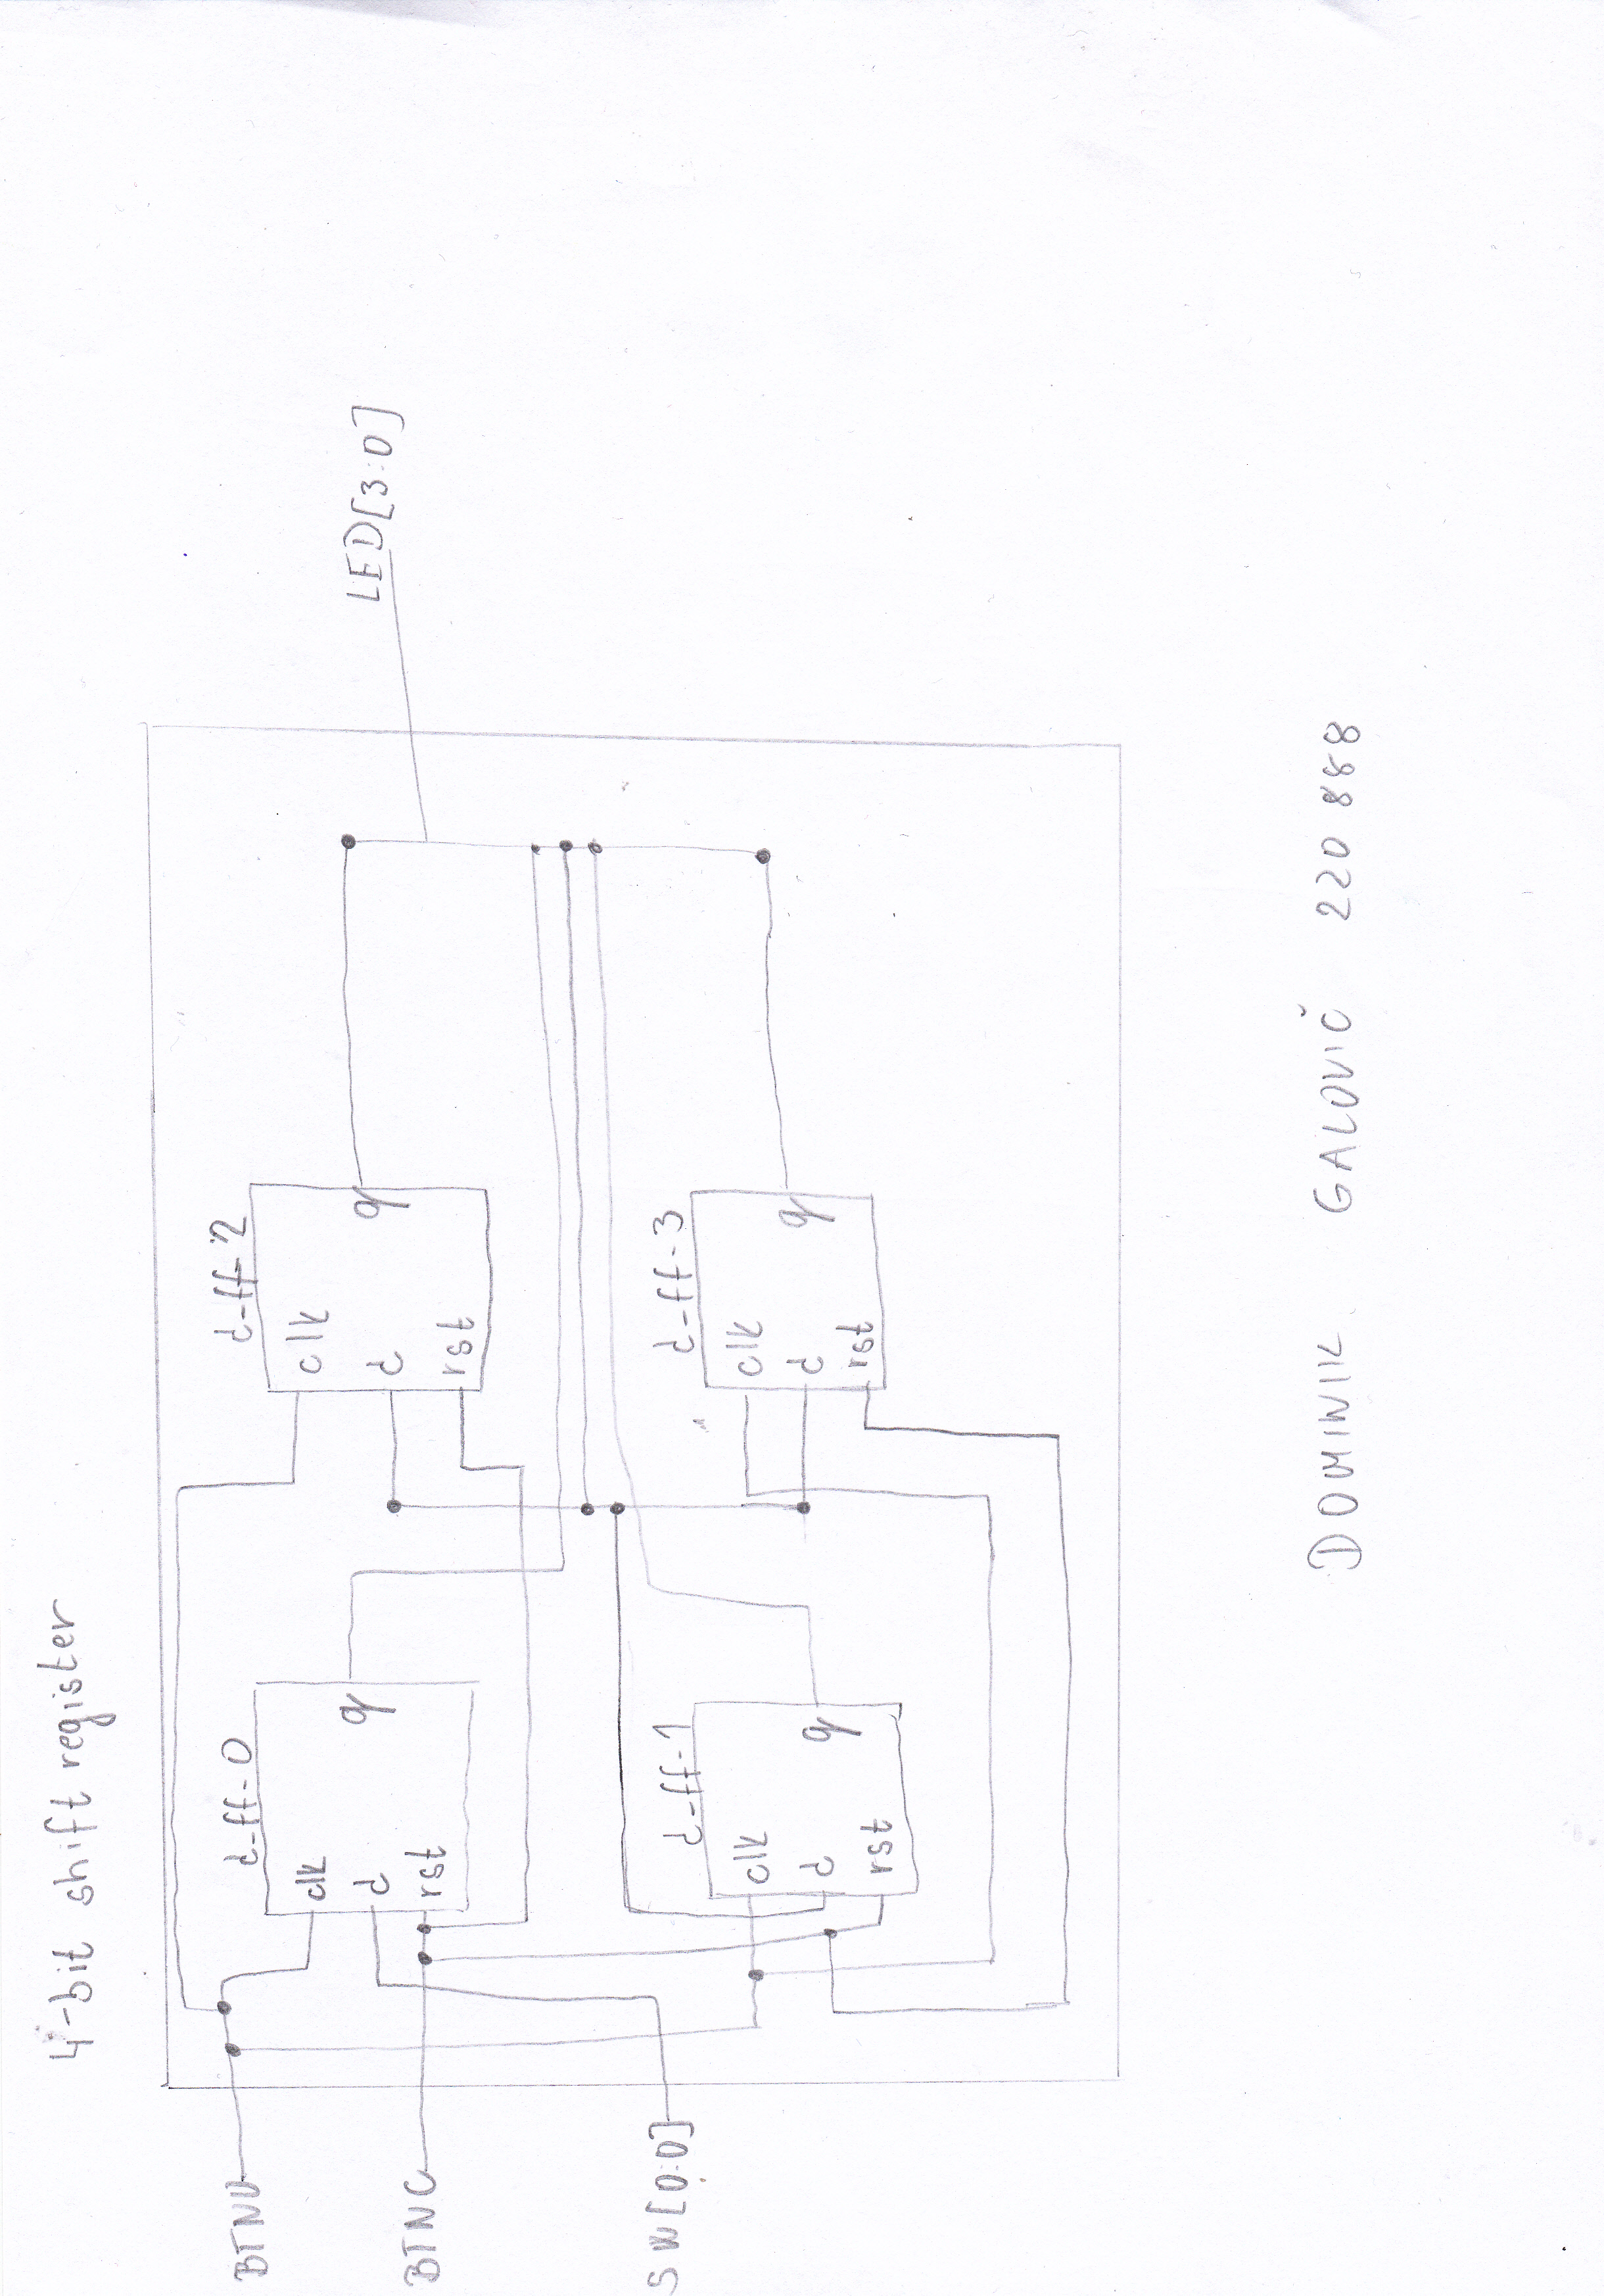 4-bit shift register
BTNU
d-ff-0
clk
d
rst
q
d-ff-2
clk
d
rst
q
LED[3:0]
BTNC
SW[0:0]
d-ff-1
clk
d
rst
q
d-ff-3
clk
d
rst
q
DOMINIK GALOVIČ 220 888